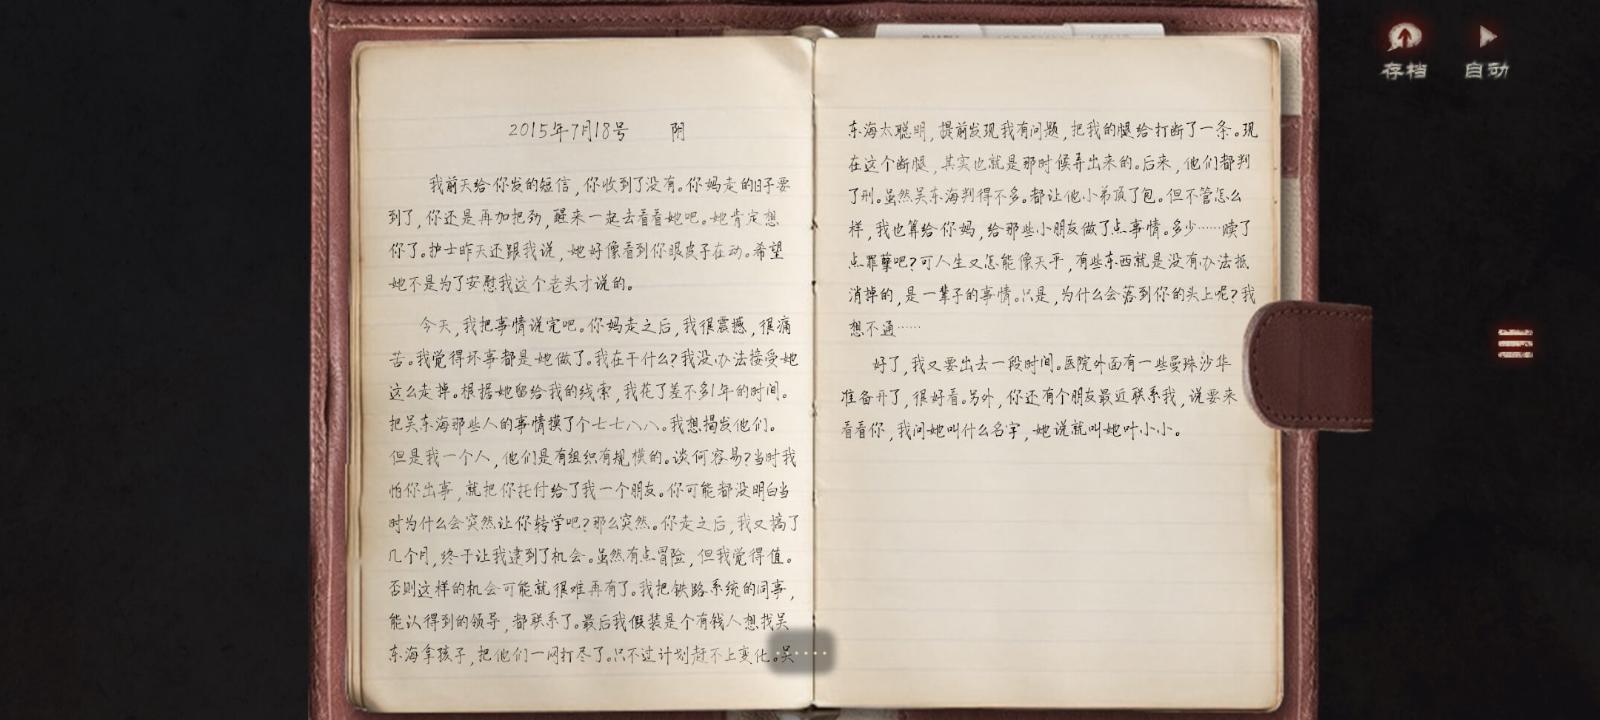 存档
自动
2015年7月18号 阴
我前天给你发的短信，你收到了没有。你妈走的日子要
到了，你还是再加把劲，醒来一起去看看她吧。她肯定想
你了。护士昨天还跟我说，她好像看到你眼皮子在动。希望
她不是为了安慰我这个老头才说的。
今天，我把事情说完吧。你妈走之后，我很震撼，很痛
苦。我觉得坏事都是她做了。我在干什么？我没办法接受她
这么走掉。根据她留给我的线索，我花了差不多1年的时间。
把吴东海那些人的事情摸了个七七八八。我想揭发他们。
但是我一个人，他们是有组织有规模的。谈何容易？当时我
怕你出事，就把你托付给了我一个朋友。你可能都没明白当
时为什么会突然让你转学吧？那么突然。你走之后，我又搞了
几个月，终于让我逮到了机会。虽然有点冒险，但我觉得值。
否则这样的机会可能就很难再有了。我把铁路系统的同事，
能认得到的领导，都联系了。最后我假装是个有钱人想找吴
东海拿孩子，把他们一网打尽了。只不过计划赶不上变化。吴
东海太聪明，提前发现我有问题，把我的腿给打断了一条。现
在这个断腿，其实也就是那时候弄出来的。后来，他们都判
了刑。虽然吴东海判得不多。都让他小弟顶了包。但不管怎么
样，我也算给你妈，给那些小朋友做了点事情。多少……赎了
点罪孽吧？可人生又怎能像天平，有些东西就是没有办法抵
消掉的，是一辈子的事情。只是，为什么会落到你的头上呢？我
想不通……
好了，我又要出去一段时间。医院外面有一些曼珠沙华
准备开了，很好看。另外，你还有个朋友最近联系我，说要来
看看你，我问她叫什么名字，她说就叫她叶小小。